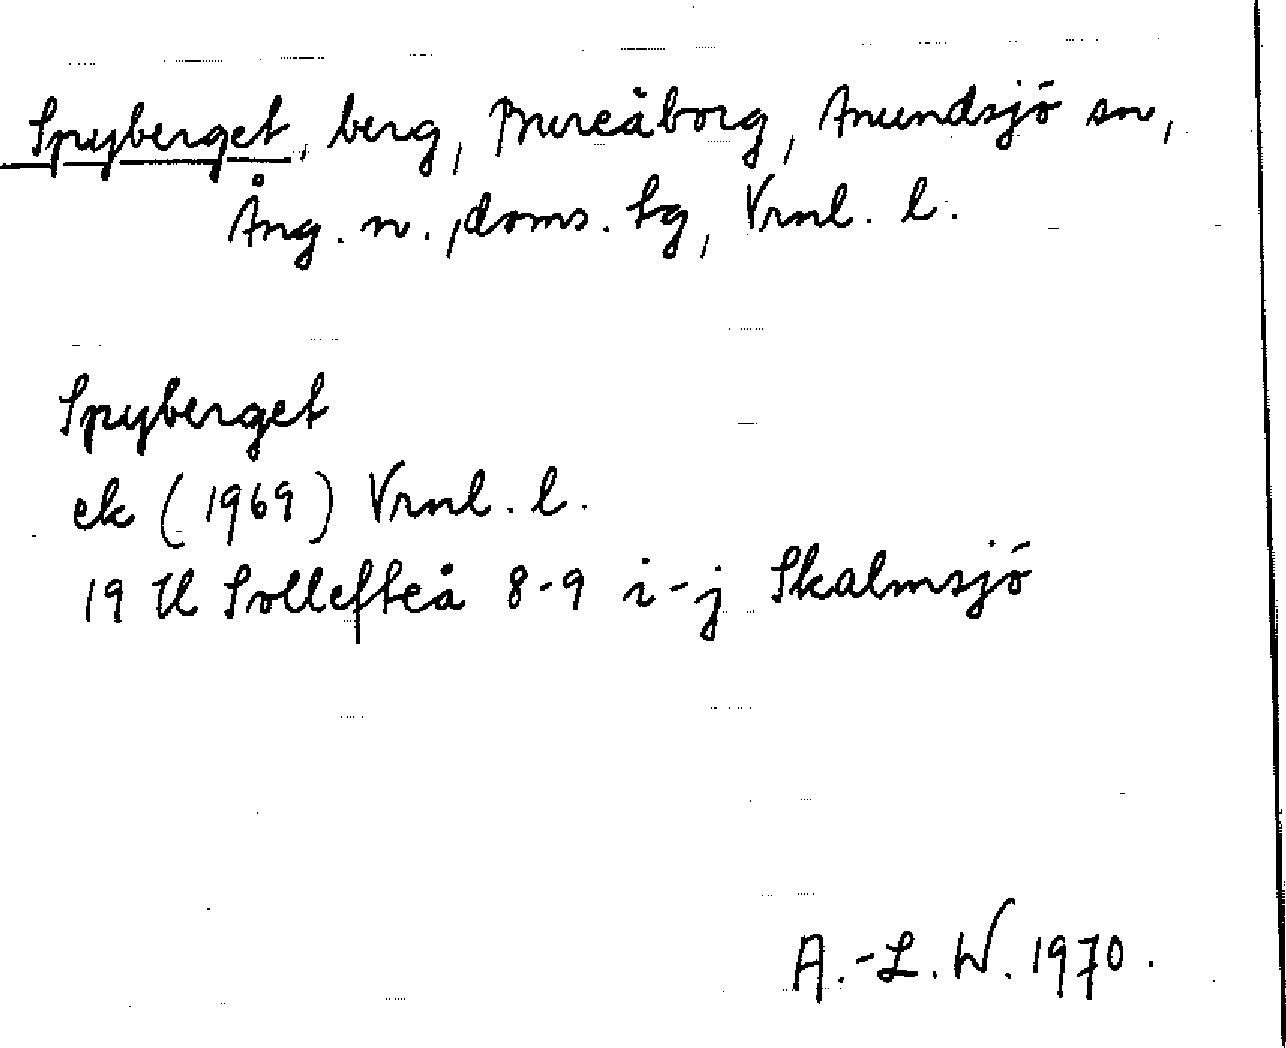 Spyberget, berg, Bureåborg, Anundsjö sn,
Ång. n., doms. hg, Vrml. l.
Spyberget
ek (1969) Vrml. l.
19 H Sollefteå 8-9 i-j Skalmsjö
A.-L. W. 1970.